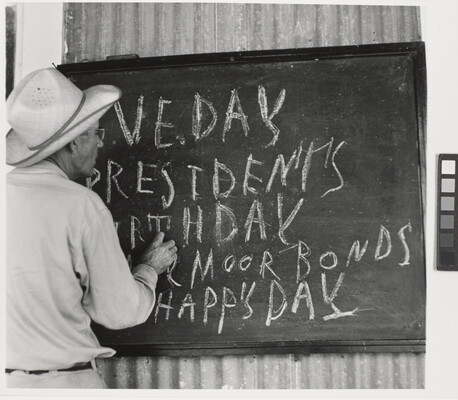 V.E.DAY
PRESIDEN'T'S
BIRTHDAY
MOOR BONDS
HAPP'S DAY